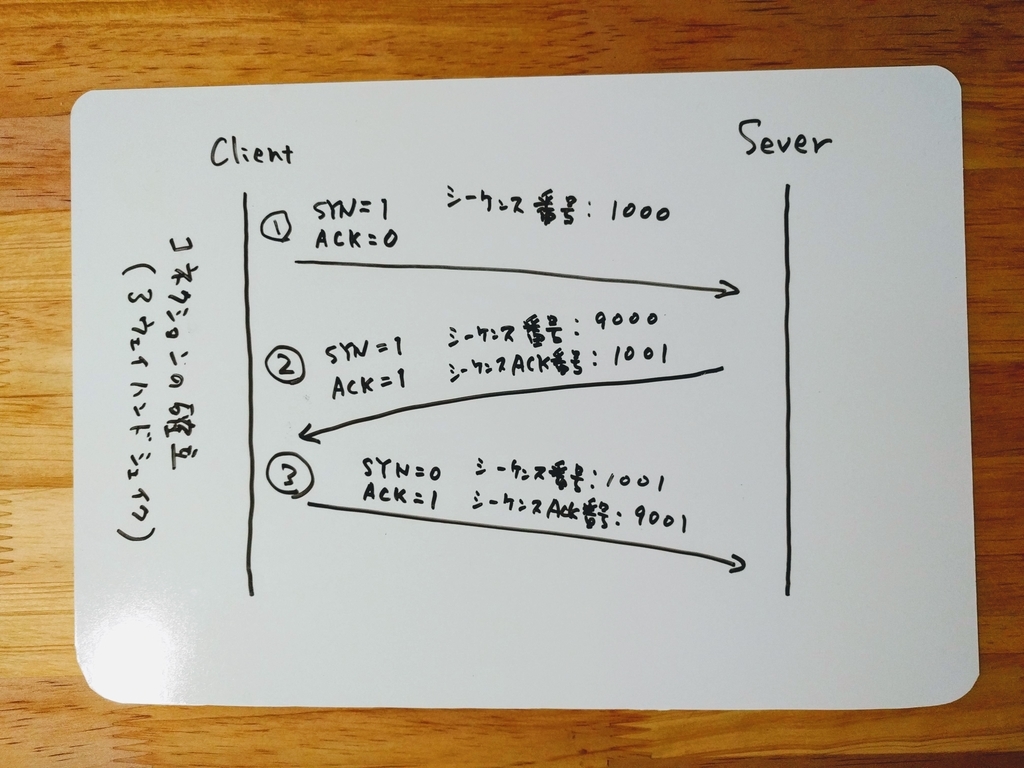 Client
Sever
コネクションの確立
(3ウェイハンドシェイク)
① SYN=1 シーケンス番号: 1000
ACK=0
② SYN=1 シーケンス番号: 9000
ACK=1 シーケンスACK番号: 1001
③ SYN=0 シーケンス番号: 1001
ACK=1 シーケンスACK番号: 9001